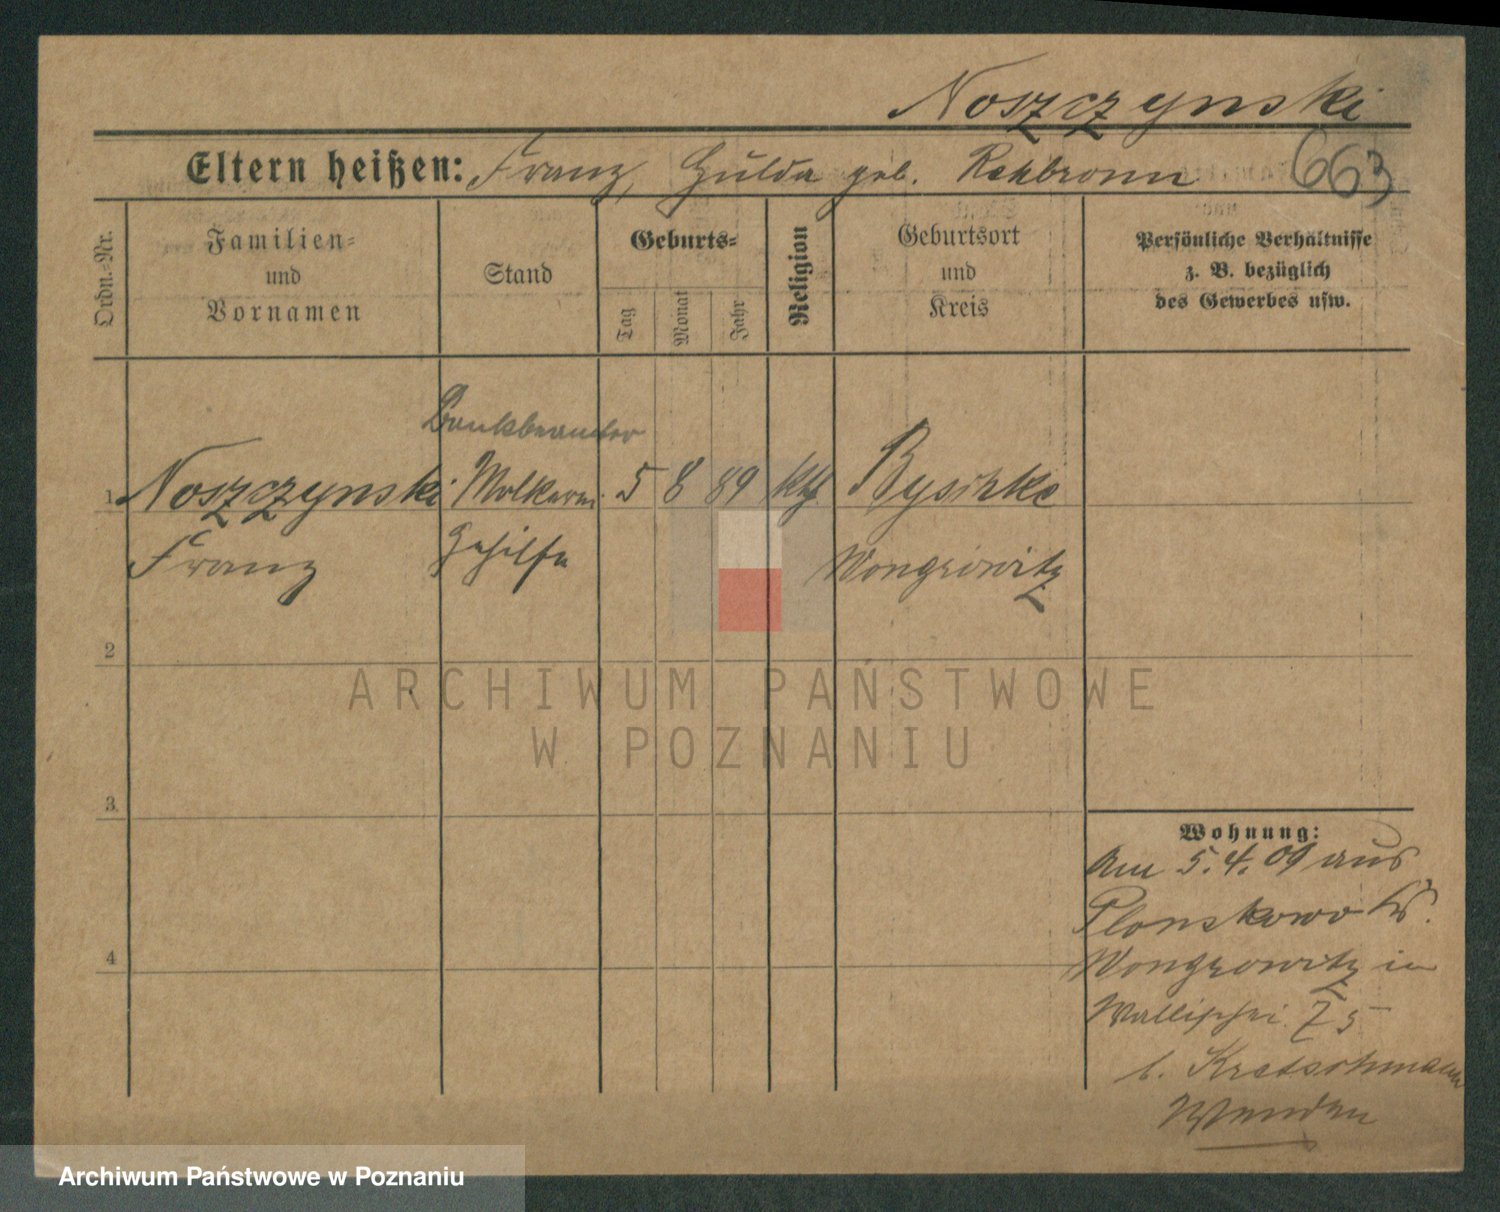 Noszczynski
Eltern heißen: Franz, Hulda geb. Rehbronn 663
Ordn.-Nr.
Familien-
und
Vornamen
Stand
Geburts-
Tag
Monat
Jahr
Religion
Geburtsort
und
Kreis
Persönliche Verhältnisse
z. B. bezüglich
des Gewerbes usw.
Bankbeamter
1 Noszczynski Molkerei 5 8 89 kth.
Franz Gehilfe Wongrowitz
2
3
4
Wohnung:
Am 5.4.09 aus
Plonskowo Kr.
Wongrowitz in
Wallischei 75
b. Kretschmann
Wenden
ARCHIWUM PAŃSTWOWE
W POZNANIU
Archiwum Państwowe w Poznaniu